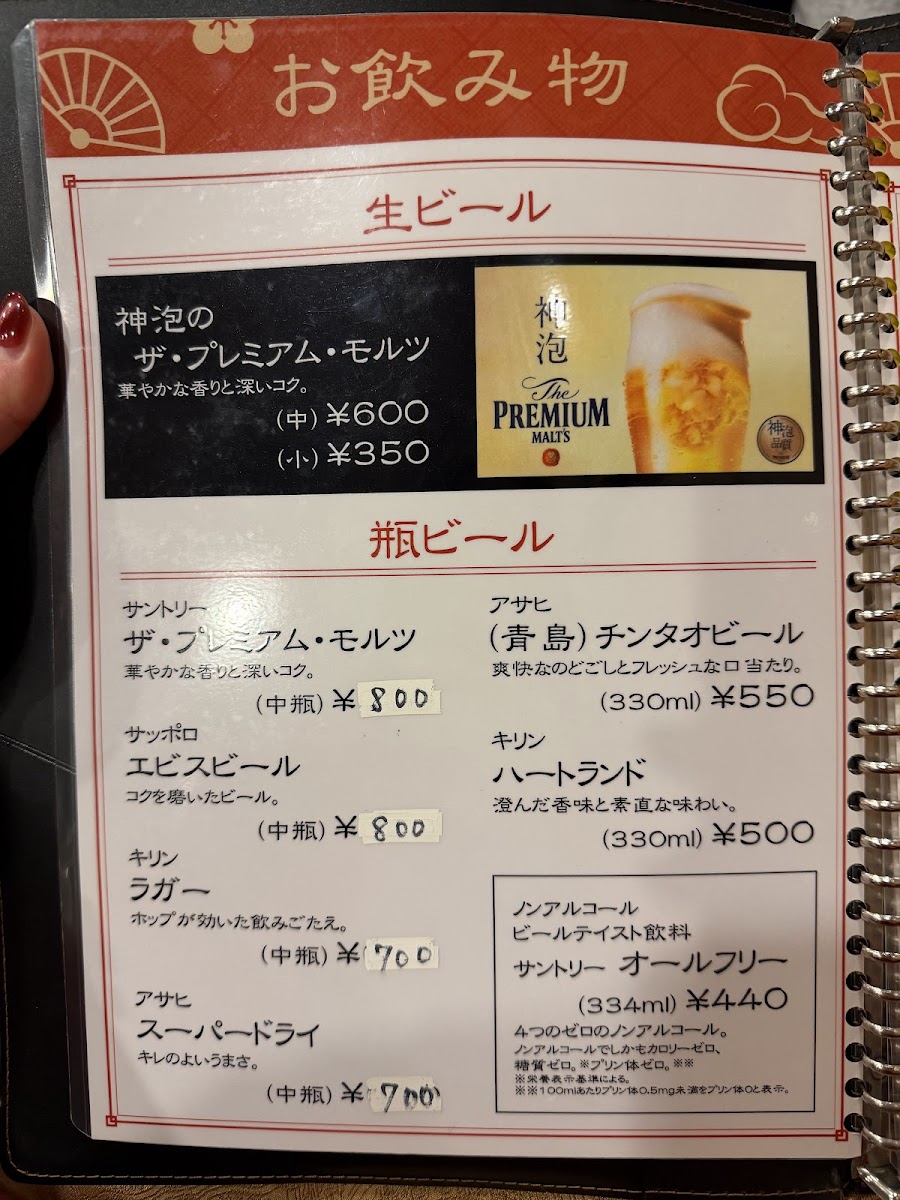 お飲み物
生ビール
神泡の
ザ・プレミアム・モルツ
華やかな香りと深いコク。
(中) ¥600
(小) ¥350
神泡
The
PREMIUM
MALT'S
神泡
品質
瓶ビール
サントリー
ザ・プレミアム・モルツ
華やかな香りと深いコク。
(中瓶) ¥800
サッポロ
エビスビール
コクを磨いたビール。
(中瓶) ¥800
キリン
ラガー
ホップが効いた飲みごたえ。
(中瓶) ¥700
アサヒ
スーパードライ
キレのよいうまさ。
(中瓶) ¥700
アサヒ
(青島)チンタオビール
爽快なのどごしとフレッシュな口当たり。
(330ml) ¥550
キリン
ハートランド
澄んだ香味と素直な味わい。
(330ml) ¥500
ノンアルコール
ビールテイスト飲料
サントリー オールフリー
(334ml) ¥440
4つのゼロのノンアルコール。
ノンアルコールでしかもカロリーゼロ、
糖質ゼロ。※プリン体ゼロ。※※
※栄養表示基準による。
※※100mlあたりプリン体0.5mg未満をプリン体0と表示。